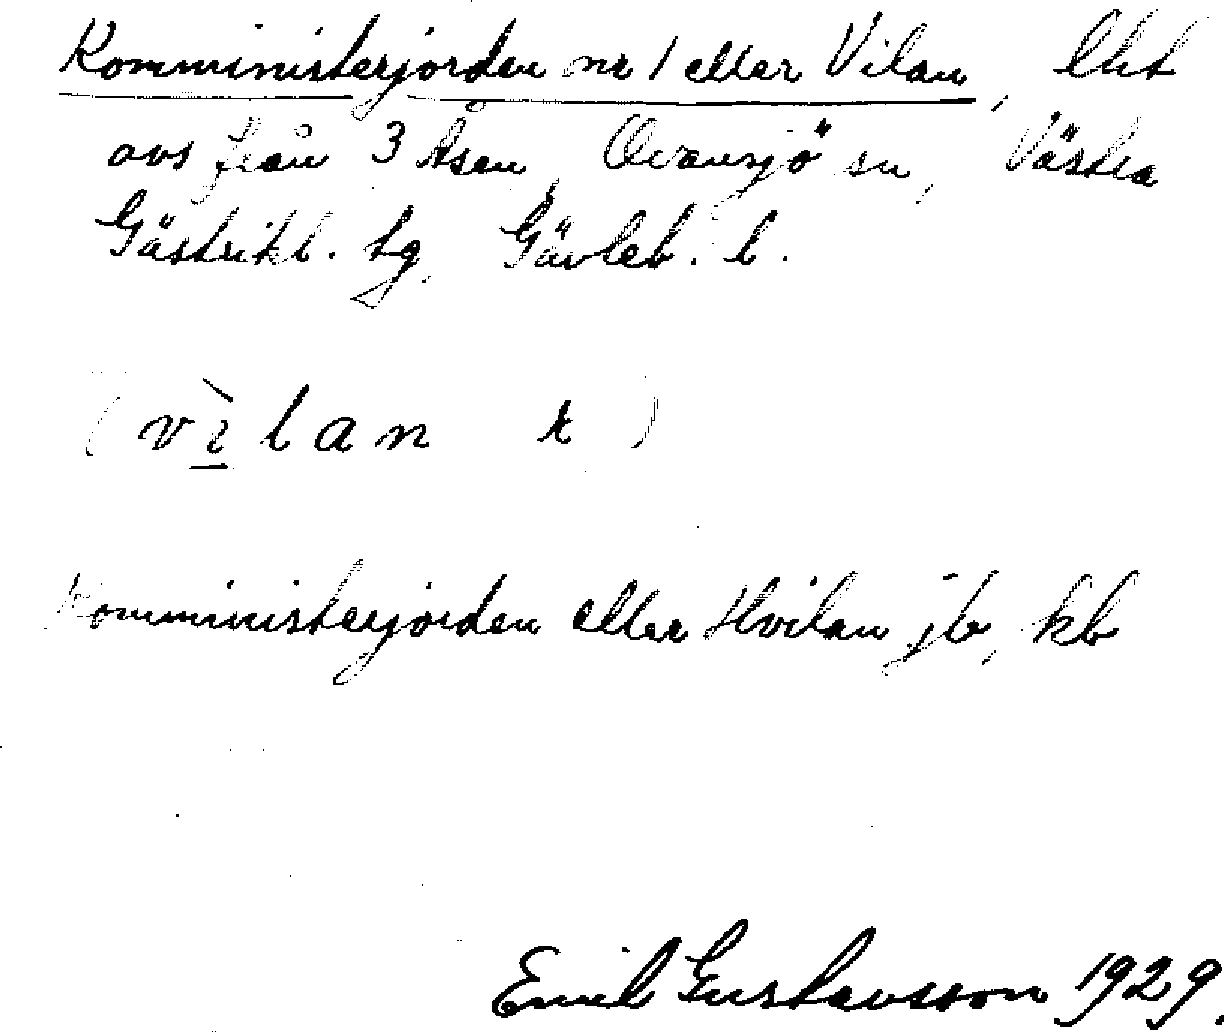 Komministerjorden nr 1 eller Vilan, lht
avs från 3 Åsen, Ovansjö sn, Västra
Gästrikl. tg. Gävleb. l.
(vìlan k)
Komministerjorden eller Hvilan jb, kb
Emil Gustavsson 1929.